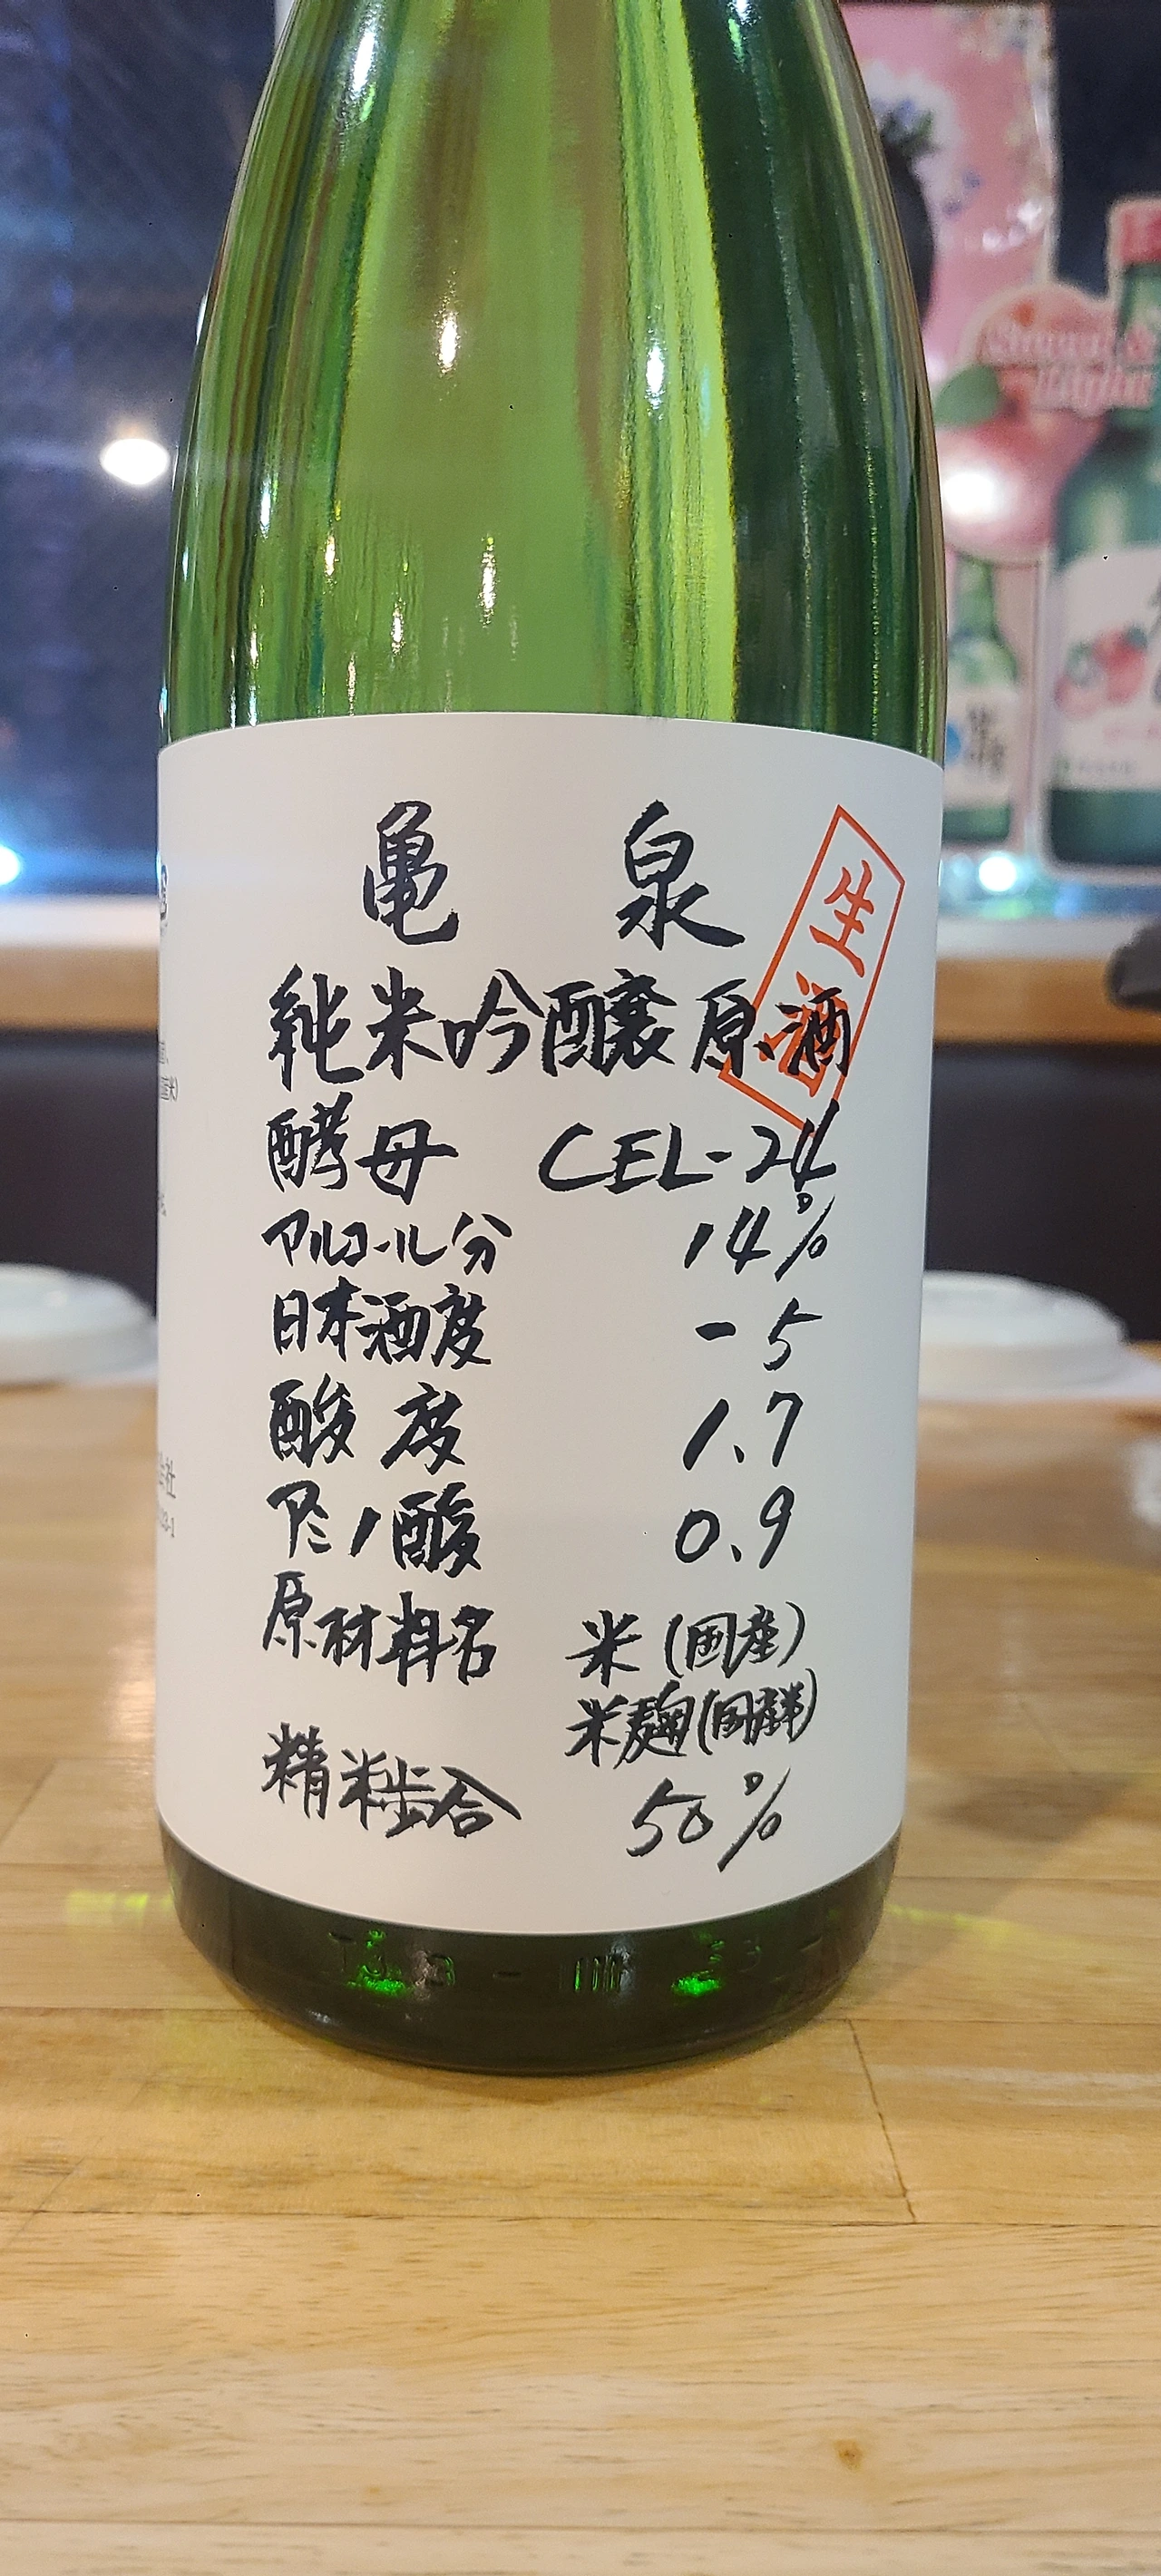 亀 泉
生酒
純米吟醸原酒
酵母 CEL-24
アルコール分 14%
日本酒度 -5
酸度 1.7
アミノ酸 0.9
原材料名 米(国産)
米麹(国産米)
精米歩合 50%